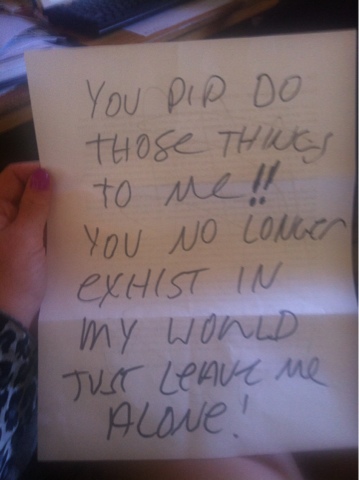 YOU DID DO
THOSE THINGS
TO ME!!
YOU NO LONGER
EXHIST IN
MY WORLD
JUST LEAVE ME
ALONE!